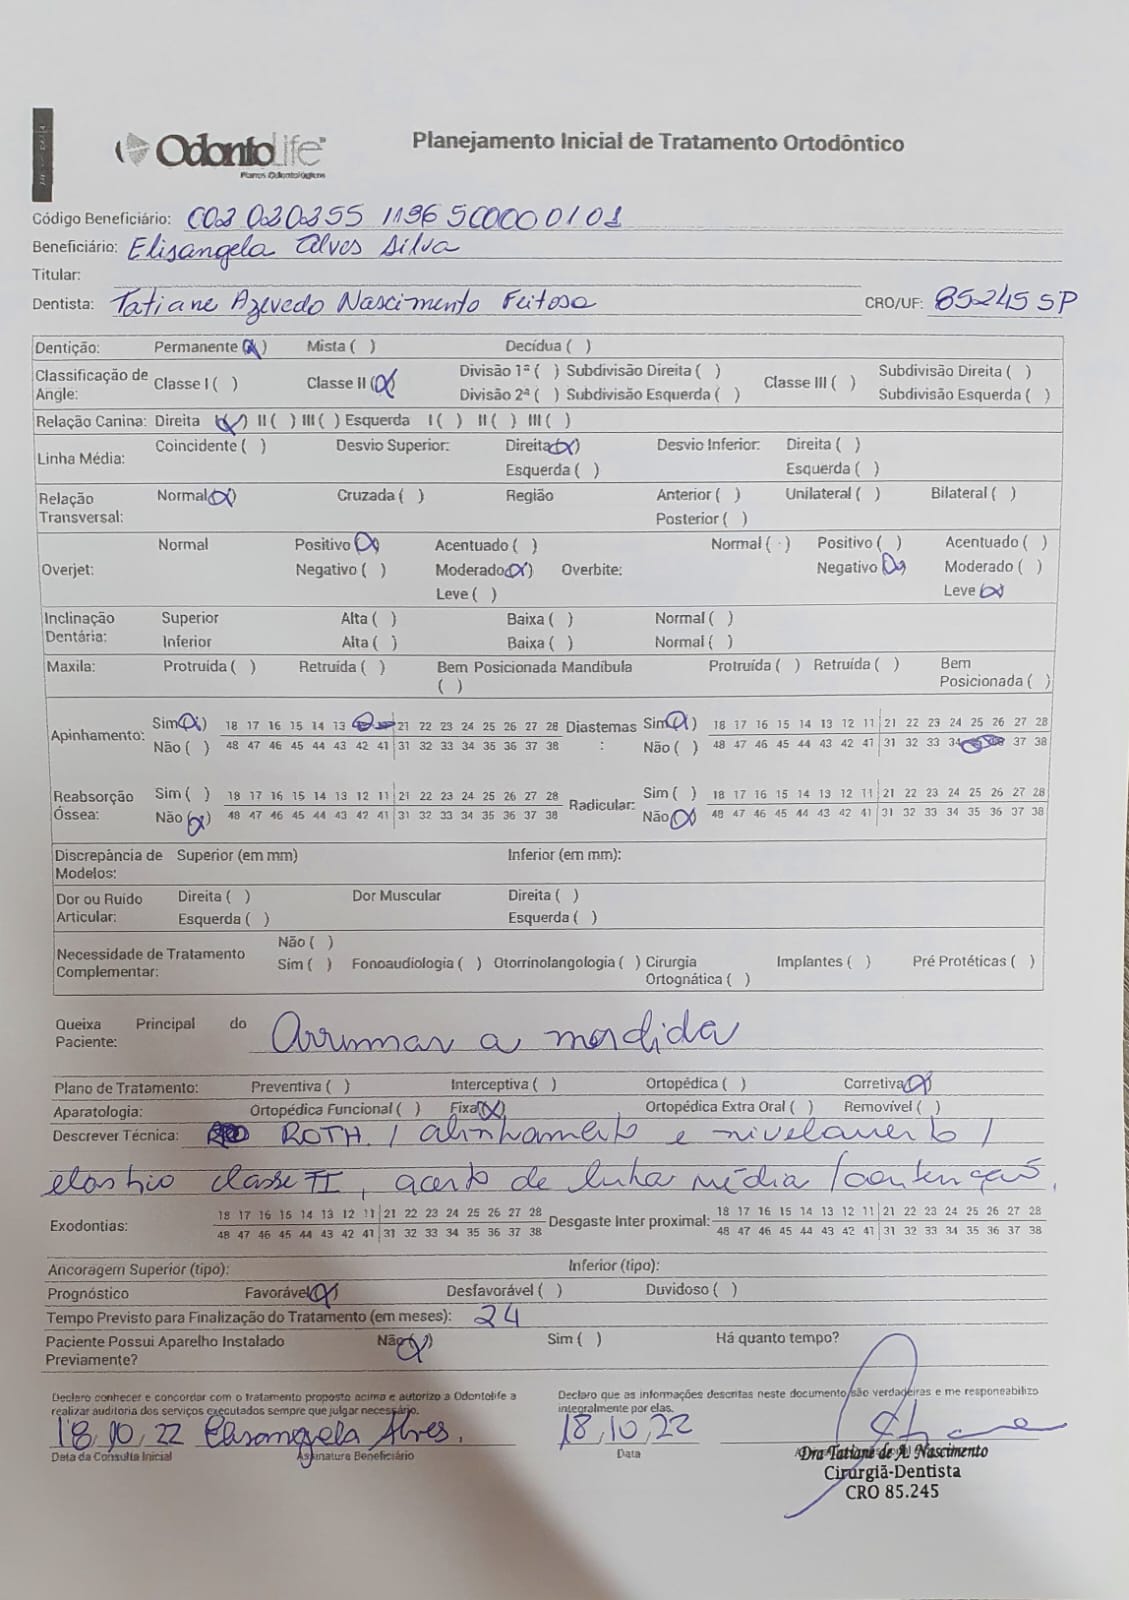 OdontoLife
Planos Odontológicos
Planejamento Inicial de Tratamento Ortodôntico
Código Beneficiário: 002 020255 1196 500000 0101
Beneficiário: Elisangela Alves Silva
Titular:
Dentista: Tatiane Azevedo Nascimento Feitosa CRO/UF: 85245 SP
Dentição: Permanente (X) Mista ( ) Decídua ( )
Classificação de Angle: Classe I ( ) Classe II (X) Divisão 1ª ( ) Subdivisão Direita ( ) Classe III ( ) Subdivisão Direita ( )
Divisão 2ª ( ) Subdivisão Esquerda ( ) Subdivisão Esquerda ( )
Relação Canina: Direita (X) II ( ) III ( ) Esquerda I ( ) II ( ) III ( )
Linha Média: Coincidente ( ) Desvio Superior: Direita (X) Desvio Inferior: Direita ( )
Esquerda ( ) Esquerda ( )
Relação Transversal: Normal (X) Cruzada ( ) Região Anterior ( ) Unilateral ( ) Bilateral ( )
Posterior ( )
Overjet: Normal Positivo (X) Acentuado ( ) Normal ( ) Positivo ( ) Acentuado ( )
Negativo ( ) Moderado (X) Overbite: Negativo (X) Moderado ( )
Leve ( ) Leve (X)
Inclinação Dentária: Superior Alta ( ) Baixa ( ) Normal ( )
Inferior Alta ( ) Baixa ( ) Normal ( )
Maxila: Protruída ( ) Retruída ( ) Bem Posicionada ( ) Mandíbula Protruída ( ) Retruída ( ) Bem Posicionada ( )
Apinhamento: Sim (X) 18 17 16 15 14 13 21 22 23 24 25 26 27 28 Diastemas : Sim (X) 18 17 16 15 14 13 12 11 21 22 23 24 25 26 27 28
Não ( ) 48 47 46 45 44 43 42 41 31 32 33 34 35 36 37 38 Não ( ) 48 47 46 45 44 43 42 41 31 32 33 34 37 38
Reabsorção Óssea: Sim ( ) 18 17 16 15 14 13 12 11 21 22 23 24 25 26 27 28 Radicular: Sim ( ) 18 17 16 15 14 13 12 11 21 22 23 24 25 26 27 28
Não (X) 48 47 46 45 44 43 42 41 31 32 33 34 35 36 37 38 Não (X) 48 47 46 45 44 43 42 41 31 32 33 34 35 36 37 38
Discrepância de Modelos: Superior (em mm) Inferior (em mm):
Dor ou Ruído Articular: Direita ( ) Dor Muscular Direita ( )
Esquerda ( ) Esquerda ( )
Necessidade de Tratamento Complementar: Não ( )
Sim ( ) Fonoaudiologia ( ) Otorrinolangologia ( ) Cirurgia Ortognática ( ) Implantes ( ) Pré Protéticas ( )
Queixa Principal do Paciente: Arrumar a mordida
Plano de Tratamento: Preventiva ( ) Interceptiva ( ) Ortopédica ( ) Corretiva (X)
Aparatologia: Ortopédica Funcional ( ) Fixa (X) Ortopédica Extra Oral ( ) Removível ( )
Descrever Técnica: ROTH. / alinhamento e nivelamento /
elastico classe II, acerto de linha média / contenção.
Exodontias: 18 17 16 15 14 13 12 11 21 22 23 24 25 26 27 28 Desgaste Inter proximal: 18 17 16 15 14 13 12 11 21 22 23 24 25 26 27 28
48 47 46 45 44 43 42 41 31 32 33 34 35 36 37 38 48 47 46 45 44 43 42 41 31 32 33 34 35 36 37 38
Ancoragem Superior (tipo): Inferior (tipo):
Prognóstico Favorável (X) Desfavorável ( ) Duvidoso ( )
Tempo Previsto para Finalização do Tratamento (em meses): 24
Paciente Possui Aparelho Instalado Previamente? Não (X) Sim ( ) Há quanto tempo?
Declaro conhecer e concordar com o tratamento proposto acima e autorizo a Odontolife a realizar auditoria dos serviços executados sempre que julgar necessário.
Declaro que as informações descritas neste documento são verdadeiras e me responsabilizo integralmente por elas.
18, 10, 22 Elisangela Alves. 18, 10, 22
Data da Consulta Inicial Assinatura Beneficiário Data
Dra Tatiane de A Nascimento
Cirurgiã-Dentista
CRO 85.245